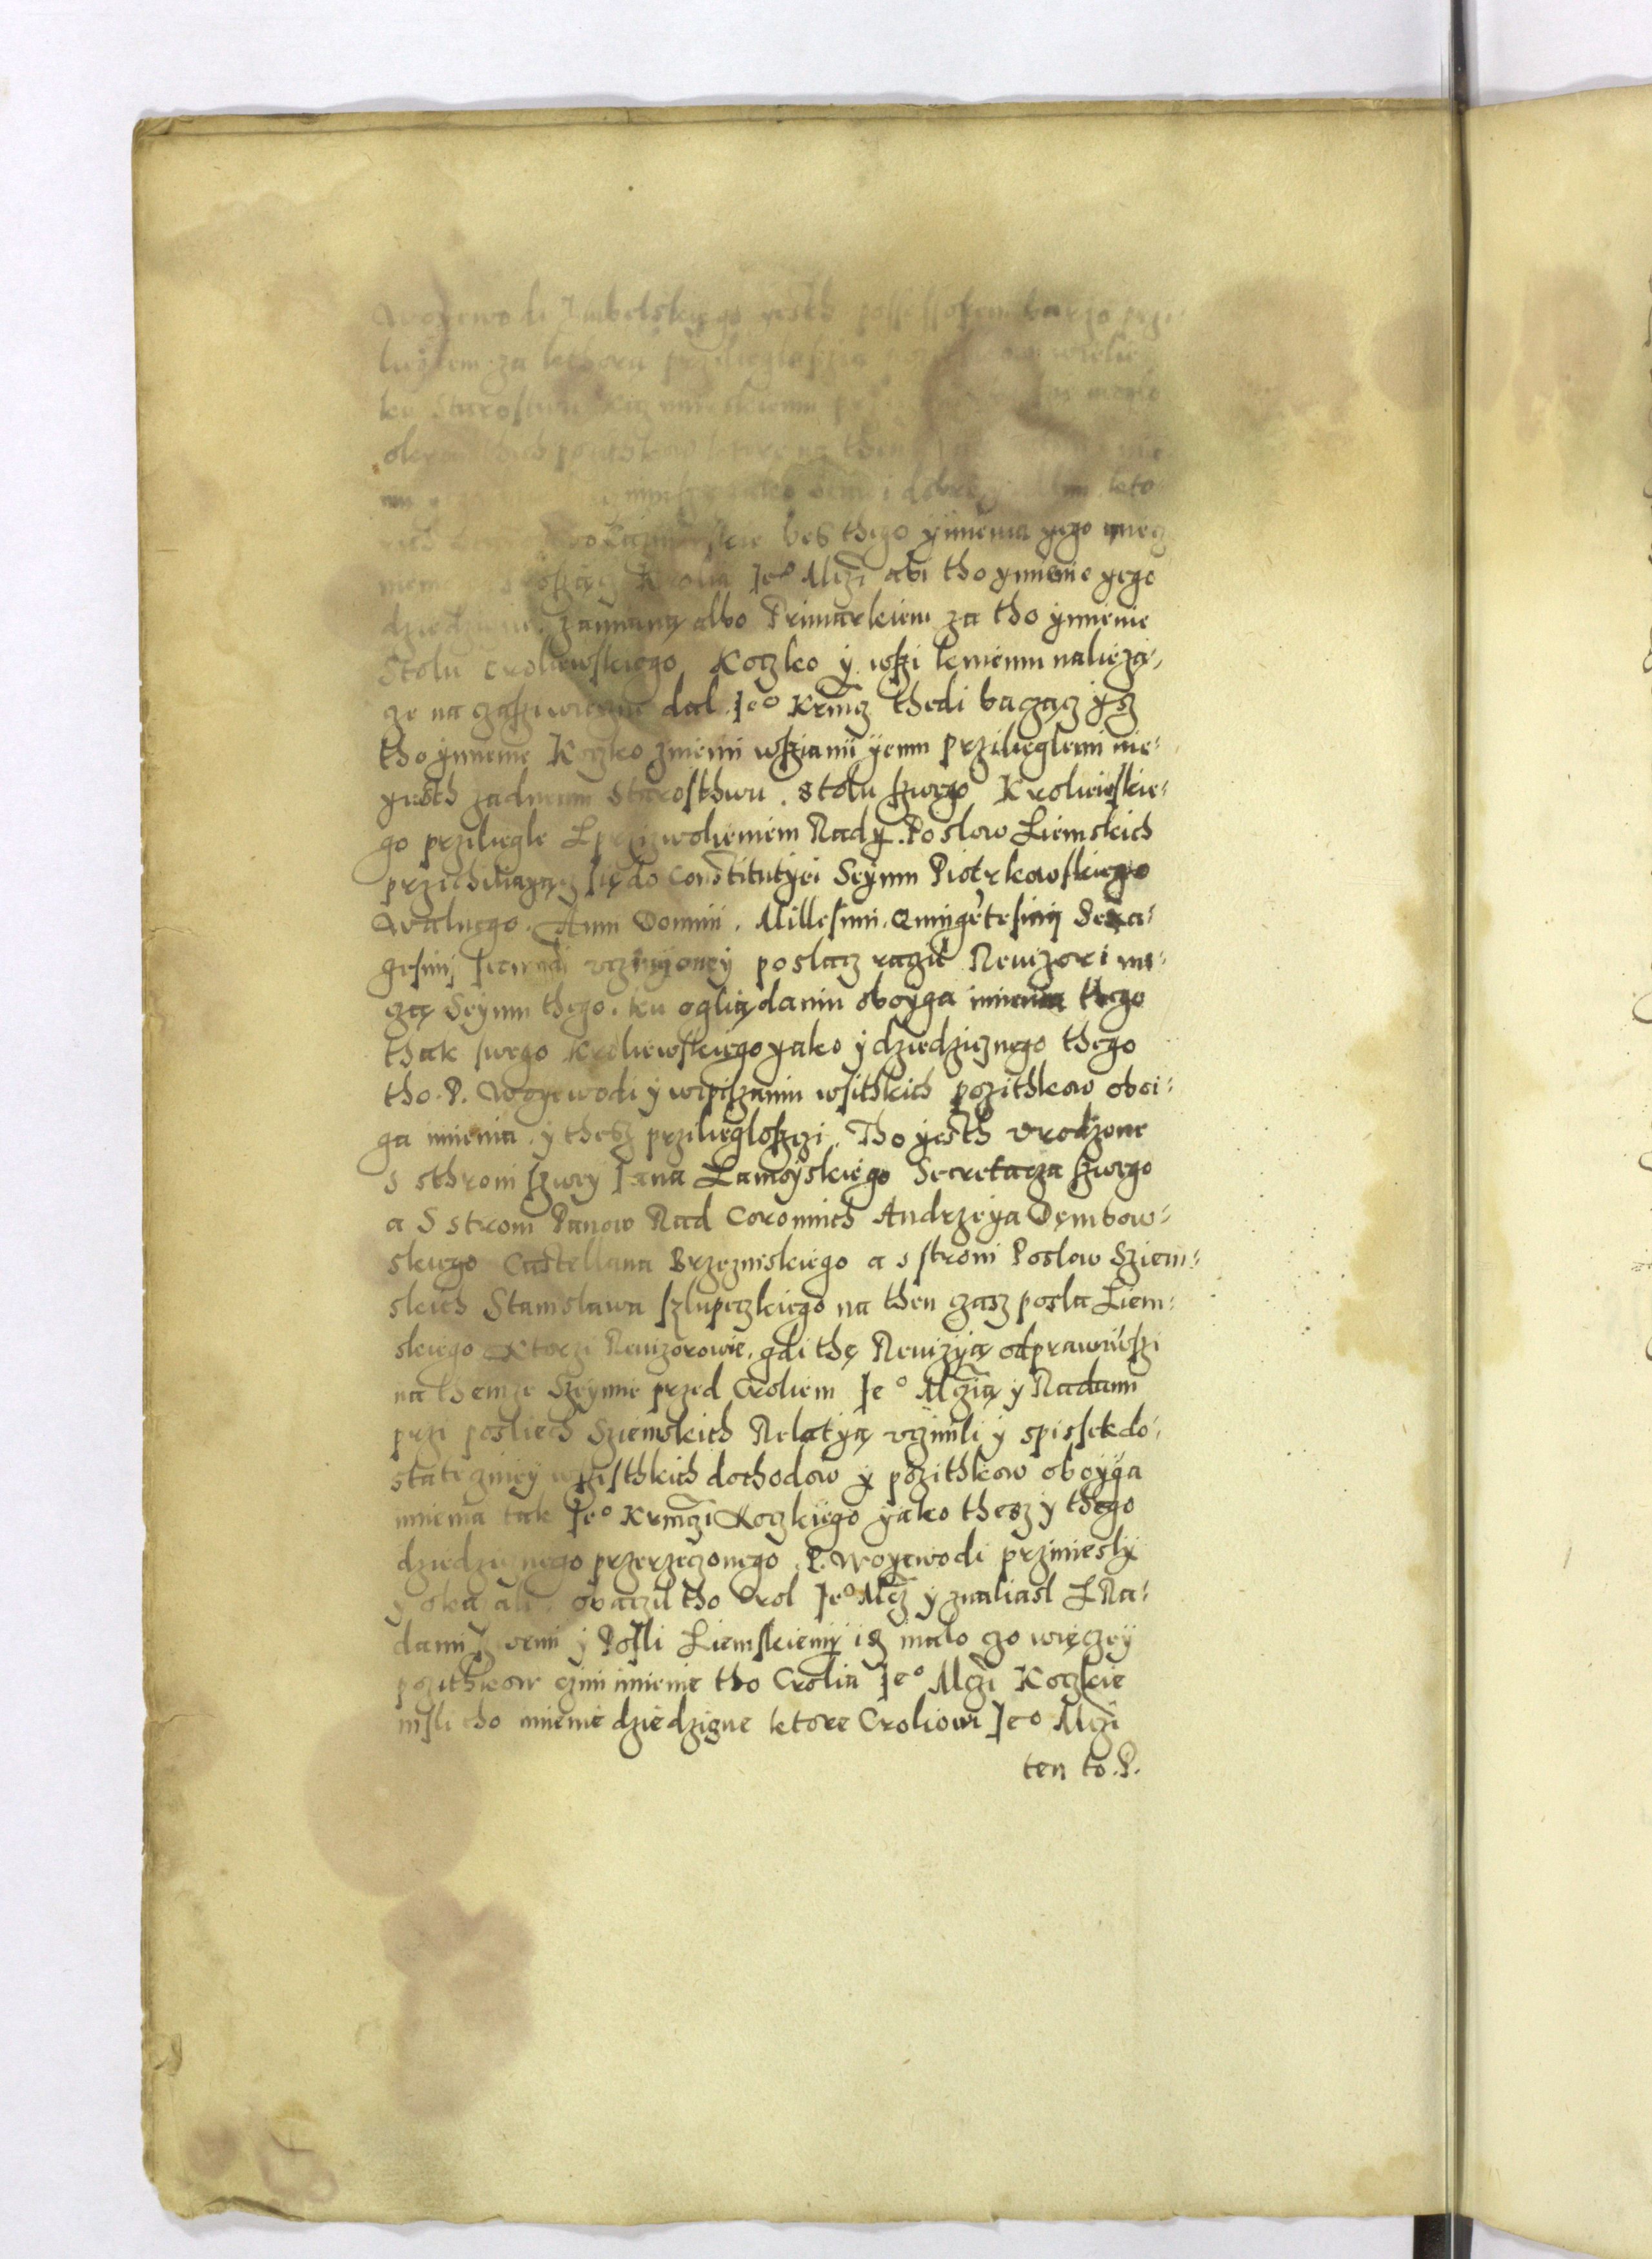 Woyewodi Lubelskiego yesth possessorem barzo przi-
leglem za kthora przilieglosczią pozithkow wielie
ku Starostwu
okromthich pozithkow ktore na then
mu dobrze kto-
rich bes thego ymienia yego miecz
Krolia Jeo Mczi abi tho ymienie yego
dziedziczne zamianą albo Frimarkiem za tho ymienie
Stolu Croliewskiego Koczko y wszi kemiemu należą-
cze na dal. Jeo Krmcz thedi baczącz ysz
tho ymienie Koczko zniemi wsziamÿ yemu przilieglemi nie-
yesth zadnemu Starosthwu, Stolu szwego Kroliewskie-
go przilegle Z przizwoliemem Rady. Poslow Ziemskich
przichiliayącz się do Constitutyei Seymu Piotrkowskiego
Walnego. Anni Domini. Millesimi. Quingetesimi Sexa-
gesimi secundi uczinyoney poslacz raczil Revizori mo-
czą Seymu thego. ku oglią̨daniu oboyga imienia thego
thak swego Kroliewskiego yako y dziedzicznego thego
tho. P. Woyewodi y wipiszaniu wsithkich pozithkow oboi-
ga imienia. y thesz przilieglosczi. Tho yesth Urodzone
s sthroni szwey Jana Zamoyskiego Secretarza szwego
a S stroni Panow Rad Coronnich Andrzeya Dembow-
skiego Castellana Brzezinskiego a s stroni Poslow Sziem-
skich Stanislawa szlupeczkiego na then czasz posla Ziem-
skiego Ktorzi Revizorowie. gdi thę Revizyą odprawiwszi
na themze Szeymie przed Croliem Jeo Mczią y Radami
przi posliech Sziemskich Relatyą uczinili y spissek do-
stateczniey wszisthkich dochodow y pozithkow oboyga
imienia tak Jeo Krmczi Koczkiego yako thesz y thego
dziedzicznego przerzeczonego P. Woyewodi prziniesly
y okazali. obaczil tho Crol Jeo Mcz y znaliasl Z Ra-
dami szwemi y Posli Ziemskiemy isz malo czo więczey
pozithkow czini imienie tho Crolia Jeo Mczi Koczkie
nisli tho imienie dziedziczne ktore Croliowi Jeo Mczi
ten to. P.